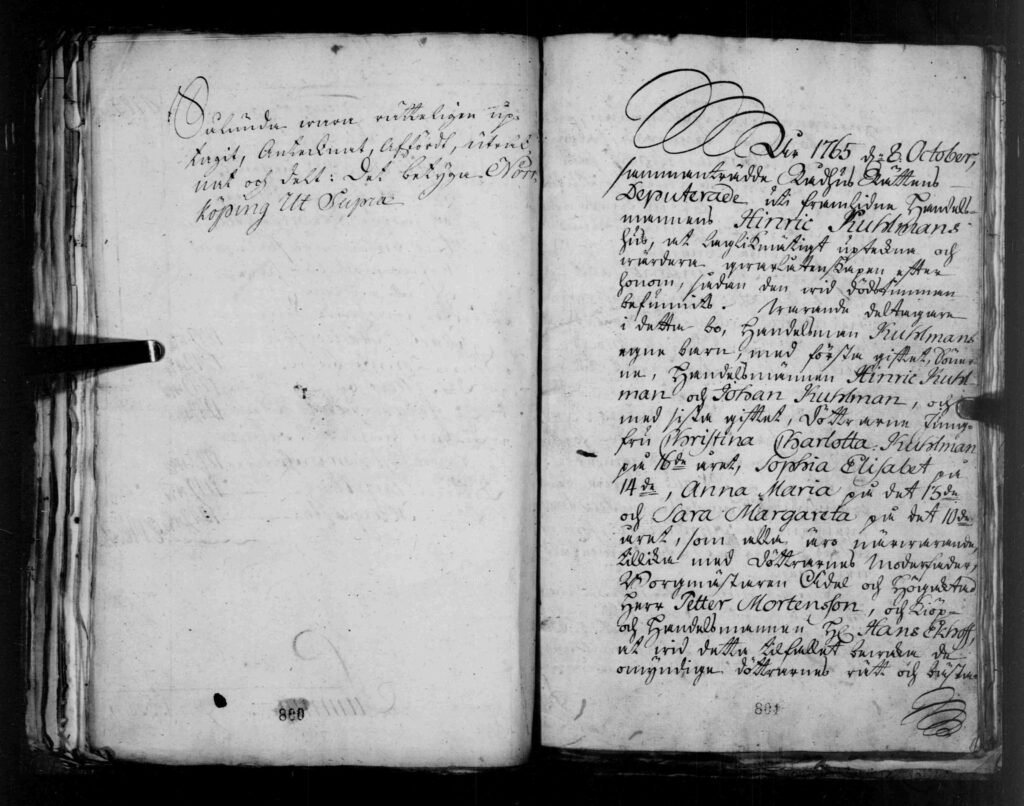 Sålunda wara rätteligen up-
tagit, Antecknat, Affördt, uträk-
nat och delt: Det betyga Norr-
köping Ut Supra
800
Åhr 1765 d: 8 October,
sammanträdde Rådhus Rättens
Deputerade uti framlidne Handels-
mannens Hinric Kuhlmans
hus, at laglikmätigt upteckna och
wärdera qwarlåtenskapen efter
honom, sådan den wid dödstimman
befunnits. Warande deltagare
i detta bo, Handelsman Kuhlmans
egne barn, med första giftet, Söner-
ne, Handelsmännen Hinric Kuhl-
man och Johan Kuhlman, och
med sista giftet, döttrarne Jung-
fru Christina Charlotta Kuhlman
på 16de året, Sophia Elisabet på
14de, Anna Maria på det 13de
och Sara Margareta på det 10de
året, som alla äro närwarande,
tillika med döttrarnes Morfader,
Borgmästaren Ädel och Högaktad
Herr Petter Mortensson, och Kiöp-
och Handelsmannen Hr Hans Ekhoff,
at wid detta tilfället bewaka de
omyndige döttrarnes rätt och bästa
801